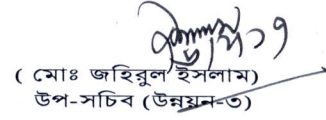 ( মোঃ জহিরুল ইসলাম)
উপ-সচিব (উন্নয়ন-৩)